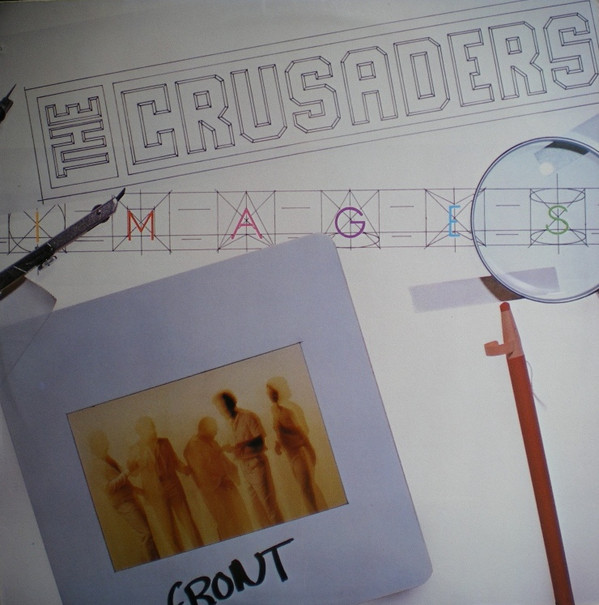 THE CRUSADERS
IMAGES
FRONT